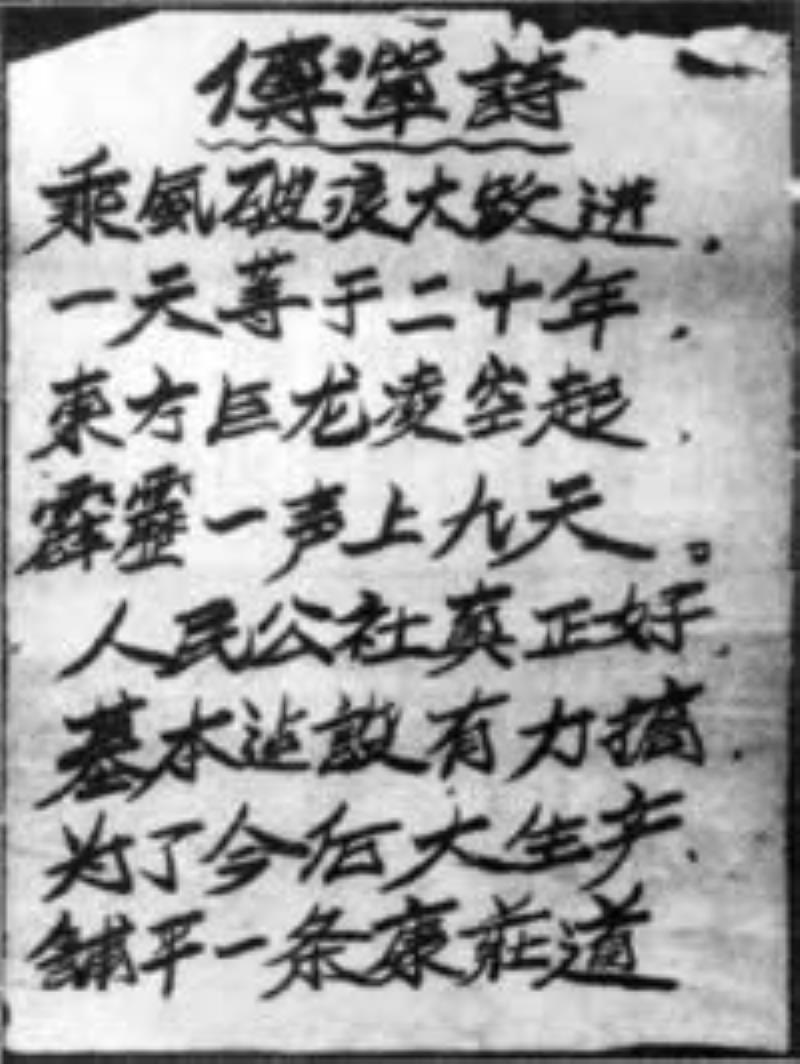 傳單詩
乘風破浪大跃进，
一天等于二十年，
東方巨龙凌空起，
霹靂一声上九天。
人民公社真正好，
基本建設有力搞，
为了今后大生产，
鋪平一条康莊道